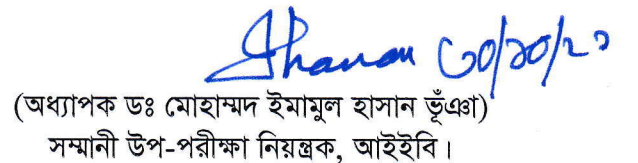 ৩০/১০/২১
(অধ্যাপক ডঃ মোহাম্মদ ইমামুল হাসান ভূঁঞা)
সম্মানী উপ-পরীক্ষা নিয়ন্ত্রক, আইইবি।